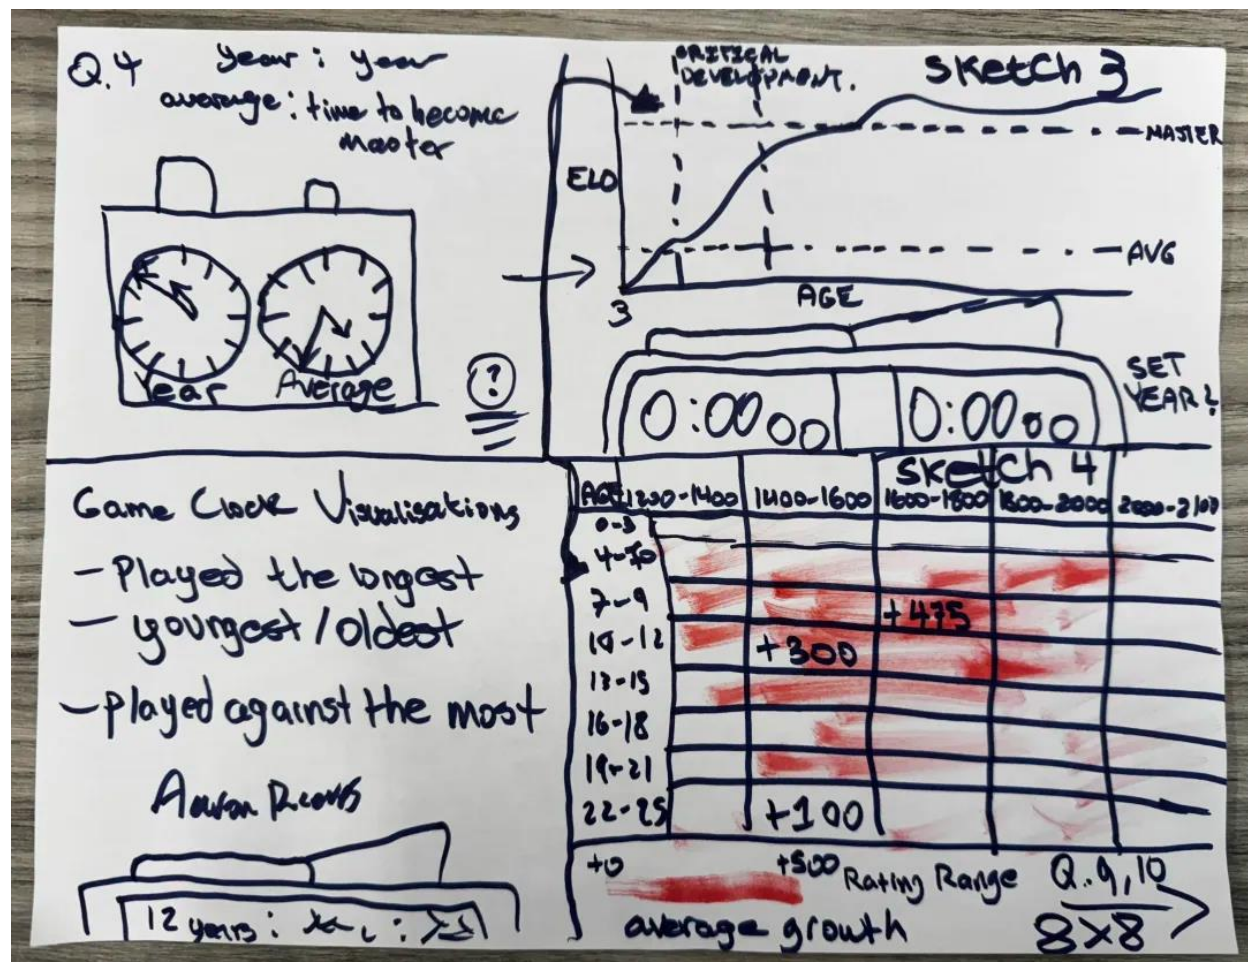 Q.4
year : year
average : time to become
master
Year
Average
?
CRITICAL
DEVELOPMENT.
SKetCh 3
MASTER
ELO
AVG
3
AGE
SET
YEAR?
0:00 00
0:00 00
Game Clock Visualisations
- Played the longest
- youngest / oldest
- played against the most
12 years :
SKetCh 4
AGE 1200-1400 1400-1600 1600-1800 1800-2000 2000-2100
0-3
7-9
+475
10-12
+300
13-15
16-18
19-21
22-25
+100
+0
+500
Rating Range
Q.9,10
average growth
8x8